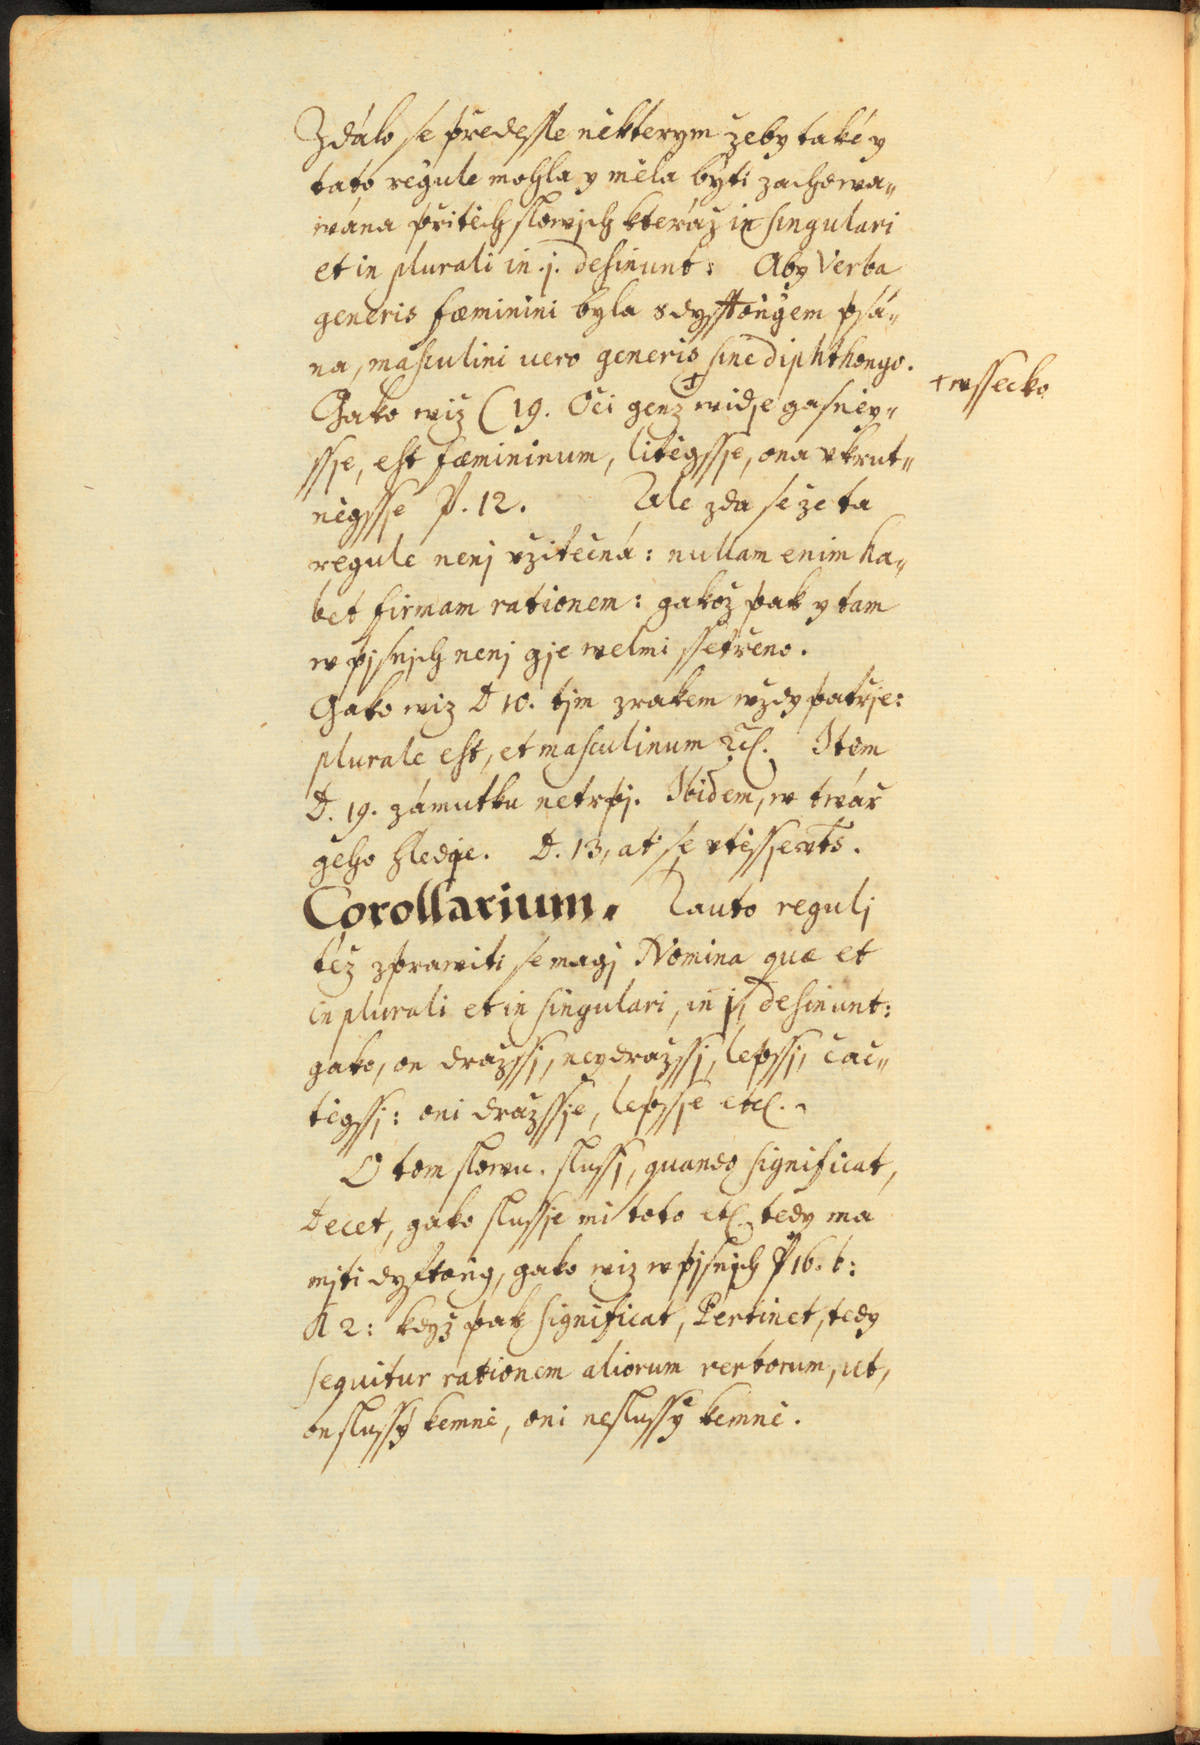 Zdálo se předesse některym žeby také y
tato regule mohla y měla býti zachowa„
wána přitěch slowjch kteráž in singulari
et in plurali in .j. desinunt: Aby Verba
generis fæminini byla s dyfftongem psá„
na, masculini uero generis sine diphthongo.
Gako wiz C 19. Oči genž + widje gasněy„
+ wssecko
ssje, est fæmininum, litěgssje, ona vkrut„
něgssje P. 12. Ale zda se že ta
regule nenj vžitečná: nullam enim ha„
bet firmam rationem: gakož pak y tam
w pjsnjch nenj gje welmi ssetřeno.
Gako wiz D 10. tjm zrakem wždy patřje:
plurale est, et masculinum etc. Item
D. 19. zámutku netrpj. Ibidem, w twář
geho hledje. D. 13, ať se vtěssje
Corollarium. Tauto regulj
též zprawiti se magj Nomina quæ et
in plurali et in singulari, in j, desinunt:
gako, on dražssj, neydražssj, lepssj, čac„
těgssj: oni dražssje, lepssje etc.
O tom slowu. slussj, quando significat,
Decet, gako slussje mi toto etc. tedy ma
mjti dyftong, gako wiz w pjsnjch P 16. b:
A 2: když pak significat, Pertinet, tedy
sequitur rationem aliorum verborum, ut,
on slussý kemně, oni neslussý kemně.
MZK
MZK